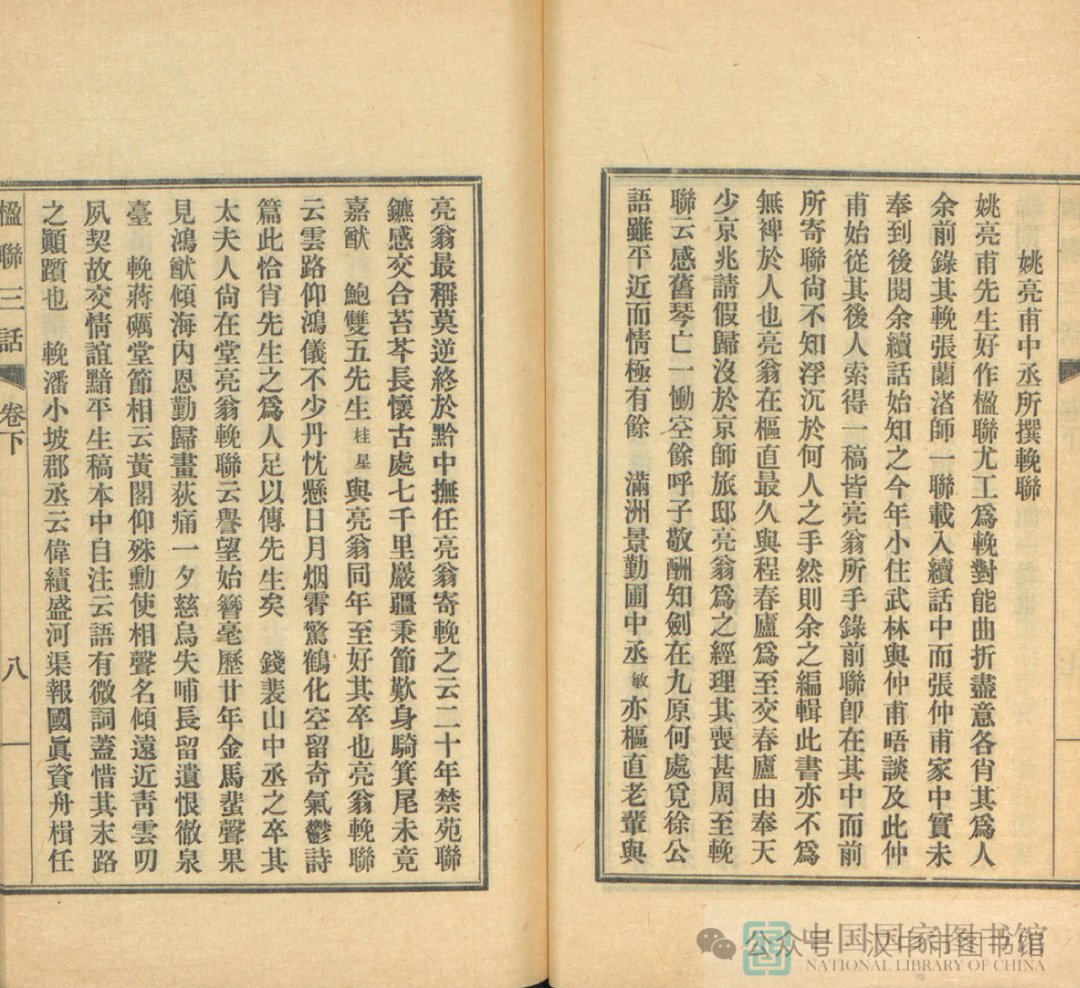 姚亮甫中丞所撰輓聯
姚亮甫先生好作楹聯尤工爲輓對能曲折盡意各肖其爲人
余前錄其輓張蘭渚師一聯載入續話中而張仲甫家中實未
奉到後閱余續話始知之今年小住武林與仲甫晤談及此仲
甫始從其後人索得一稿皆亮翁所手錄前聯卽在其中而前
所寄聯尙不知浮沉於何人之手然則余之編輯此書亦不爲
無裨於人也亮翁在樞直最久與程春廬爲至交春廬由奉天
少京兆請假歸沒於京師旅邸亮翁爲之經理其喪甚周至輓
聯云感舊琴亡一慟空餘呼子敬酬知劍在九原何處覓徐公
語雖平近而情極有餘 滿洲景勤圃中丞敏亦樞直老輩與
亮翁最稱莫逆終於黔中撫任亮翁寄輓之云二十年禁苑聯
鑣感交合苔芩長懷古處七千里巖疆秉節歎身騎箕尾未竟
嘉猷 鮑雙五先生桂星與亮翁同年至好其卒也亮翁輓聯
云雲路仰鴻儀不少丹忱懸日月烟霄驚鶴化空留奇氣鬱詩
篇此恰肖先生之爲人足以傳先生矣 錢裴山中丞之卒其
太夫人尙在堂亮翁輓聯云譽望始簪毫歷廿年金馬蜚聲果
見鴻猷傾海內恩勤歸畫荻痛一夕慈烏失哺長留遺恨徹泉
臺 輓蔣礪堂節相云黃閣仰殊勳使相聲名傾遠近靑雲叨
夙契故交情誼黯平生稿本中自注云語有微詞蓋惜其末路
之顚躓也 輓潘小坡郡丞云偉績盛河渠報國眞資舟楫任
楹聯三話 卷下 八
公众号 汉中市图书馆
中国国家图书馆
NATIONAL LIBRARY OF CHINA